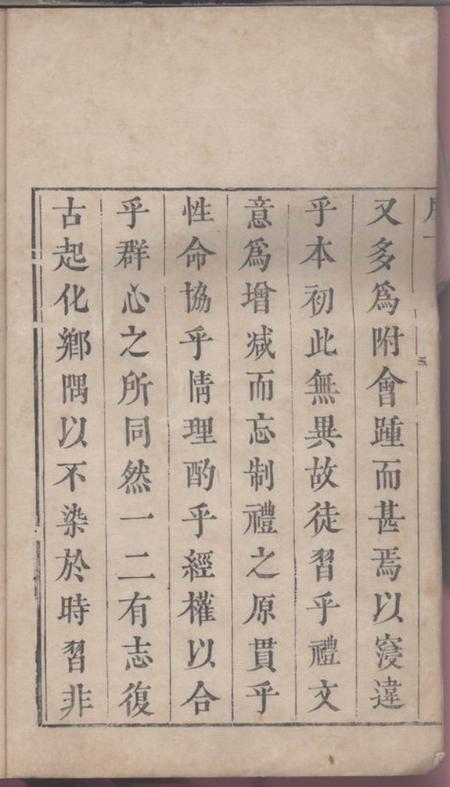 又多爲附會踵而甚焉以寖違
乎本初此無異故徒習乎禮文
意爲增減而忘制禮之原貫乎
性命協乎情理酌乎經權以合
乎群心之所同然一二有志復
古起化鄉隅以不染於時習非